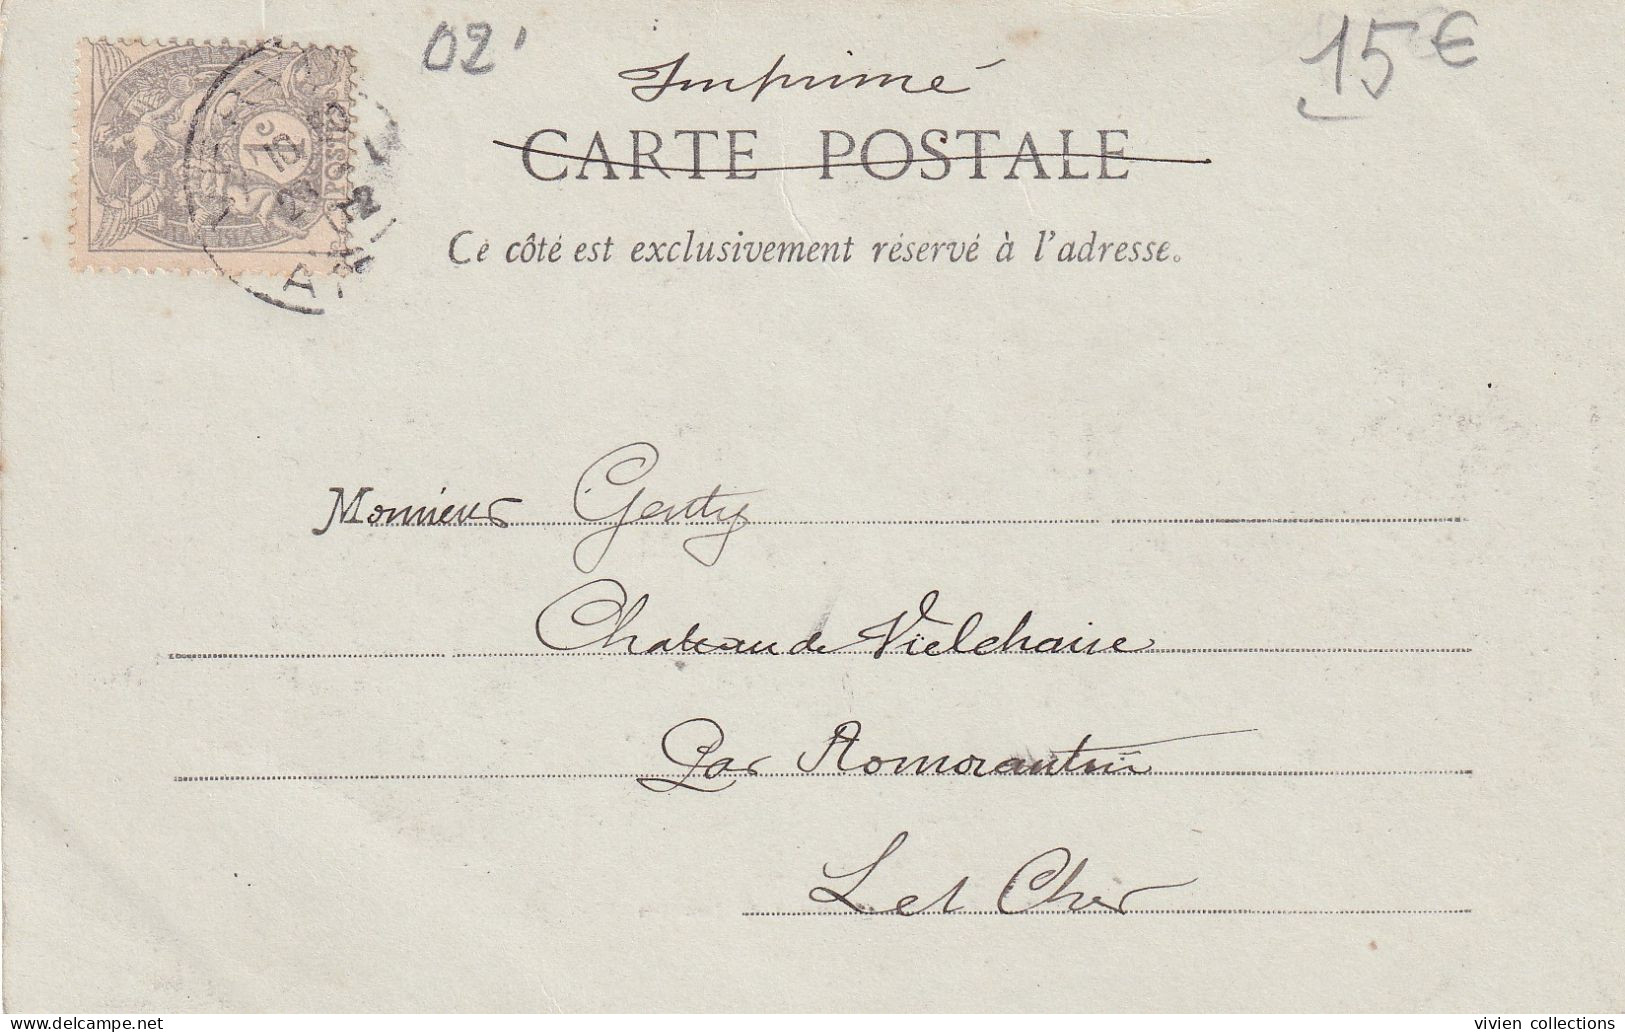 02'
15 €
Imprimé
CARTE POSTALE
Ce côté est exclusivement réservé à l'adresse.
Monsieur Genty
Chateau de Vielchaire
Par Romorantin
L et Cher
vivien collections